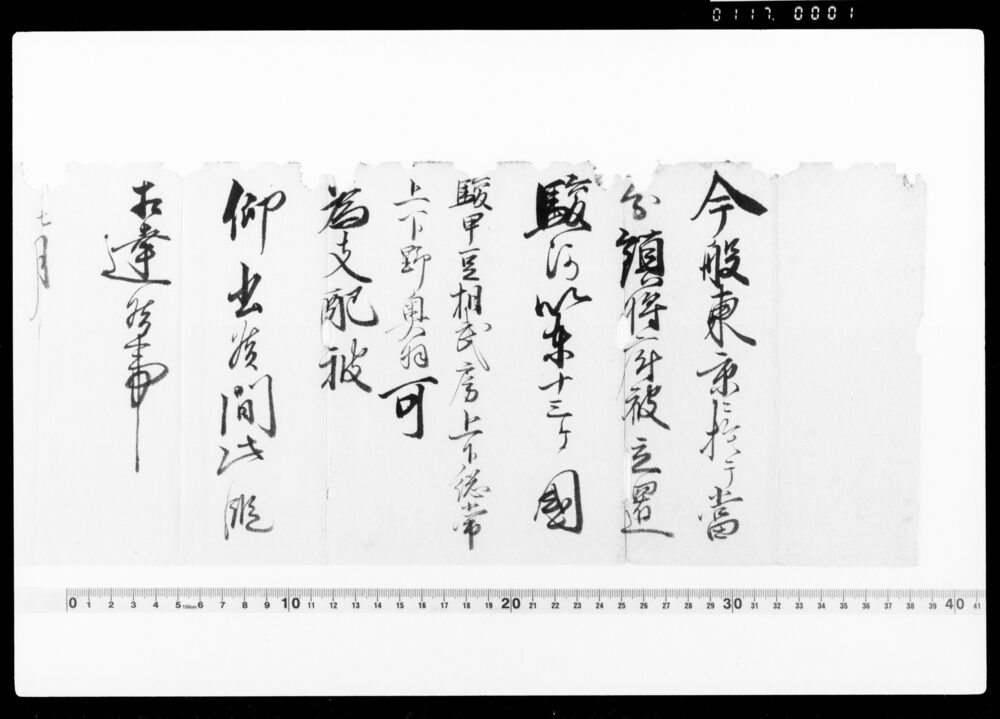 0117. 0001
今般東京ニ於テ當
分鎮将府被立置
駿河以東十三ヶ國
駿甲豆相武房上下総常
上下野奥羽可
為支配被
仰出候間此段
相達候事
七月
0 1 2 3 4 5 150mm 6 7 8 9 10 11 12 13 14 15 16 17 18 19 20 21 22 23 24 25 26 27 28 29 30 31 32 33 34 35 36 37 38 39 40 41